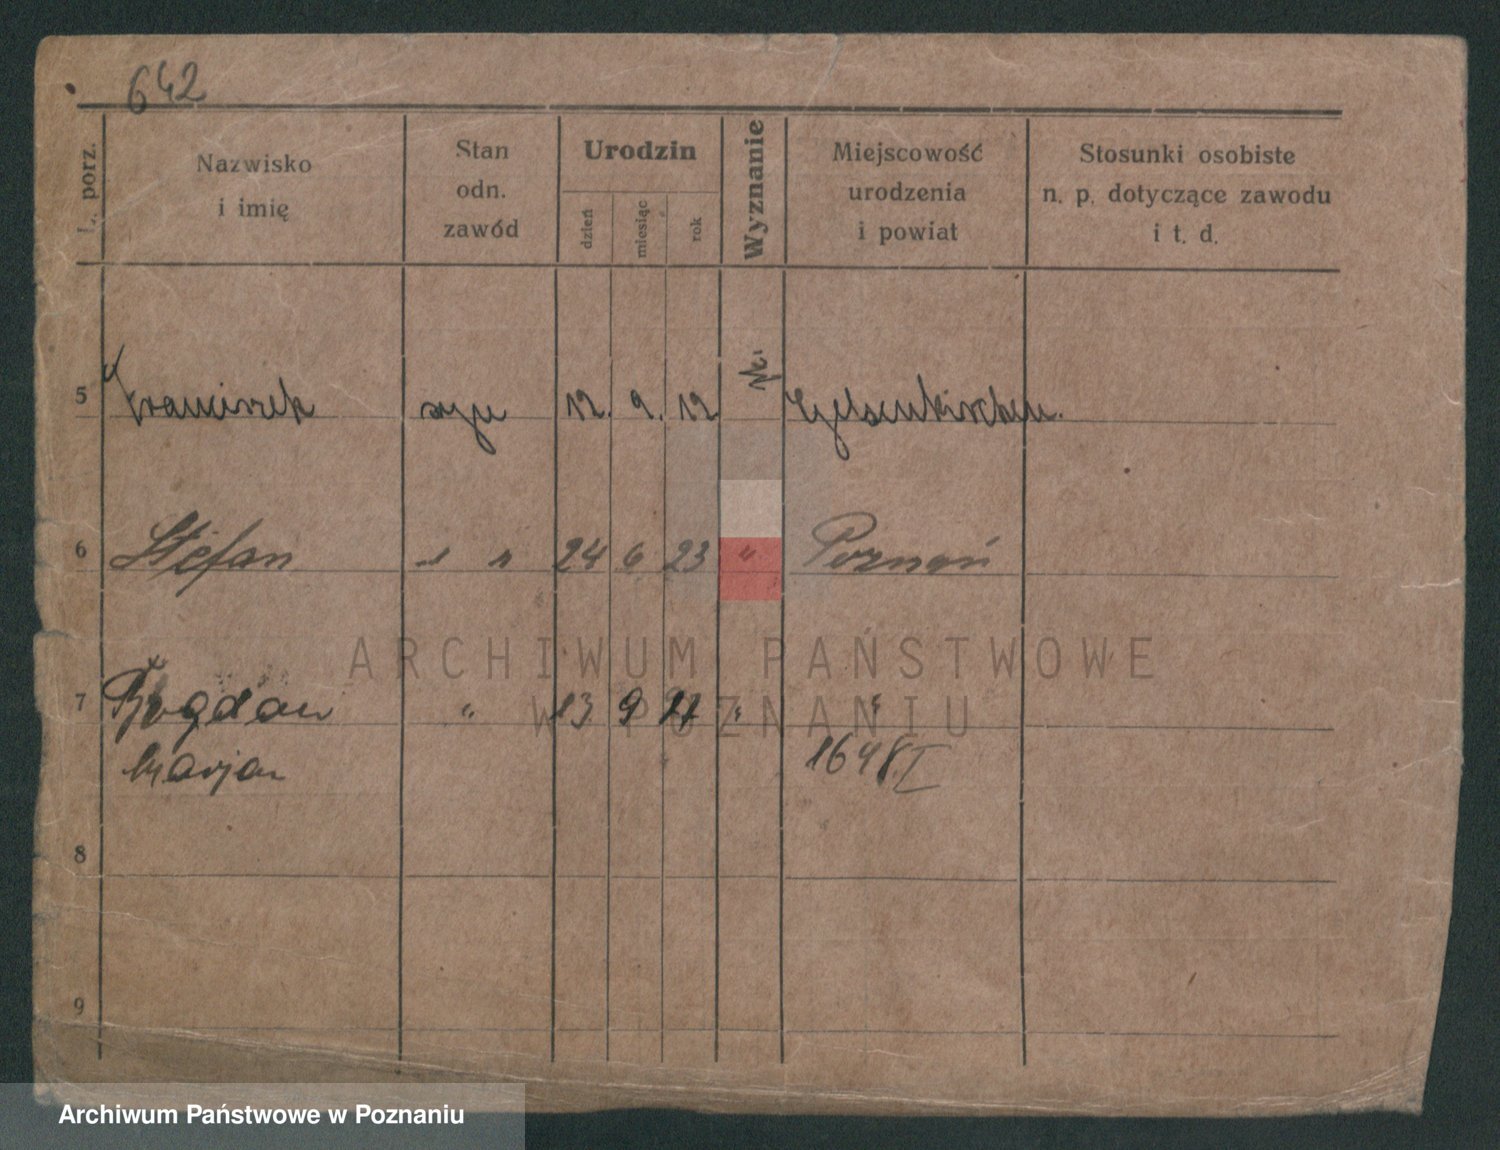 642
L. porz.
Nazwisko
i imię
Stan
odn.
zawód
Urodzin
dzień
miesiąc
rok
Wyznanie
Miejscowość
urodzenia
i powiat
Stosunki osobiste
n. p. dotyczące zawodu
i t. d.
5 Franciszek syn 12. 9. 12 Gelsenkirchen.
6 Stefan " " 24 6 23 " Poznań
7 Bogdan " 13 9 27 " "
Marjan 1648 I
8
9
ARCHIWUM PAŃSTWOWE
W POZNANIU
Archiwum Państwowe w Poznaniu